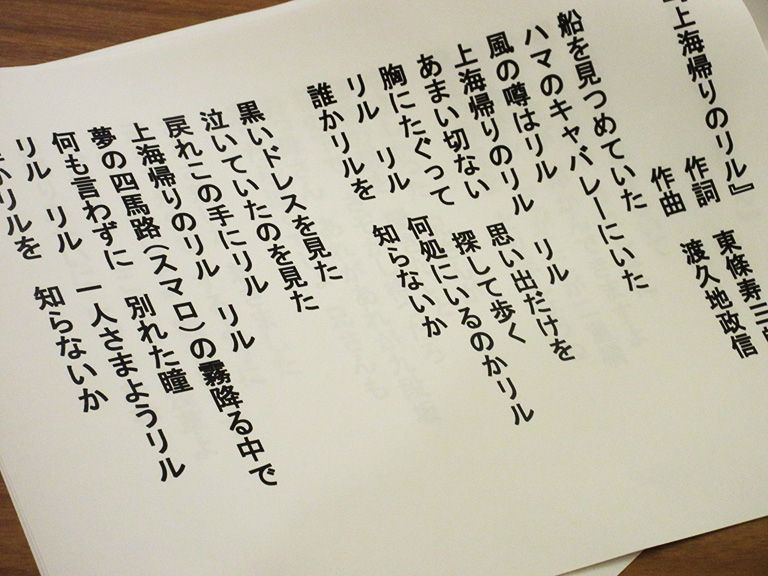 『上海帰りのリル』
作詞　東條寿三
作曲　渡久地政信
船を見つめていた
ハマのキャバレーにいた
風の噂はリル　リル
上海帰りのリル　思い出だけを
あまい切ない　探して歩く
胸にたぐって　何処にいるのかリル
リル　リル　知らないか
誰かリルを
黒いドレスを見た
泣いていたのを見た
戻れこの手にリル　リル
上海帰りのリル　の霧降る中で
夢の四馬路（スマロ）
何も言わずに　別れた瞳
リル　リル　一人さまようリル
かリルを　知らないか